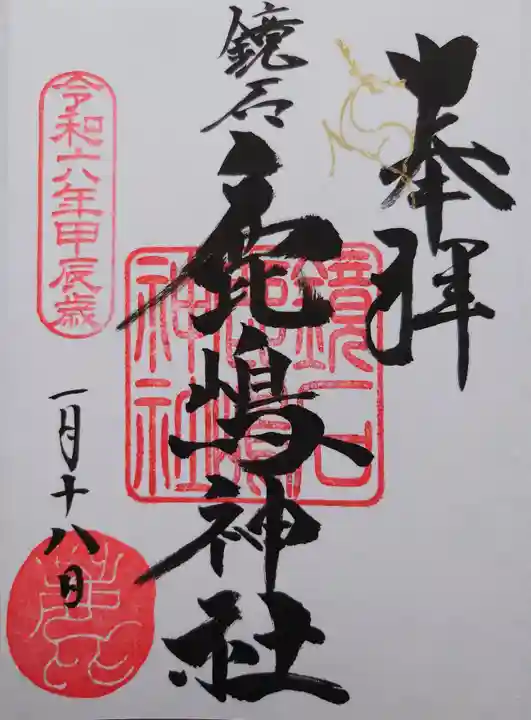 奉拝
鏡石
鹿嶋神社
鏡石
神社
令和六年甲辰歳
一月十八日